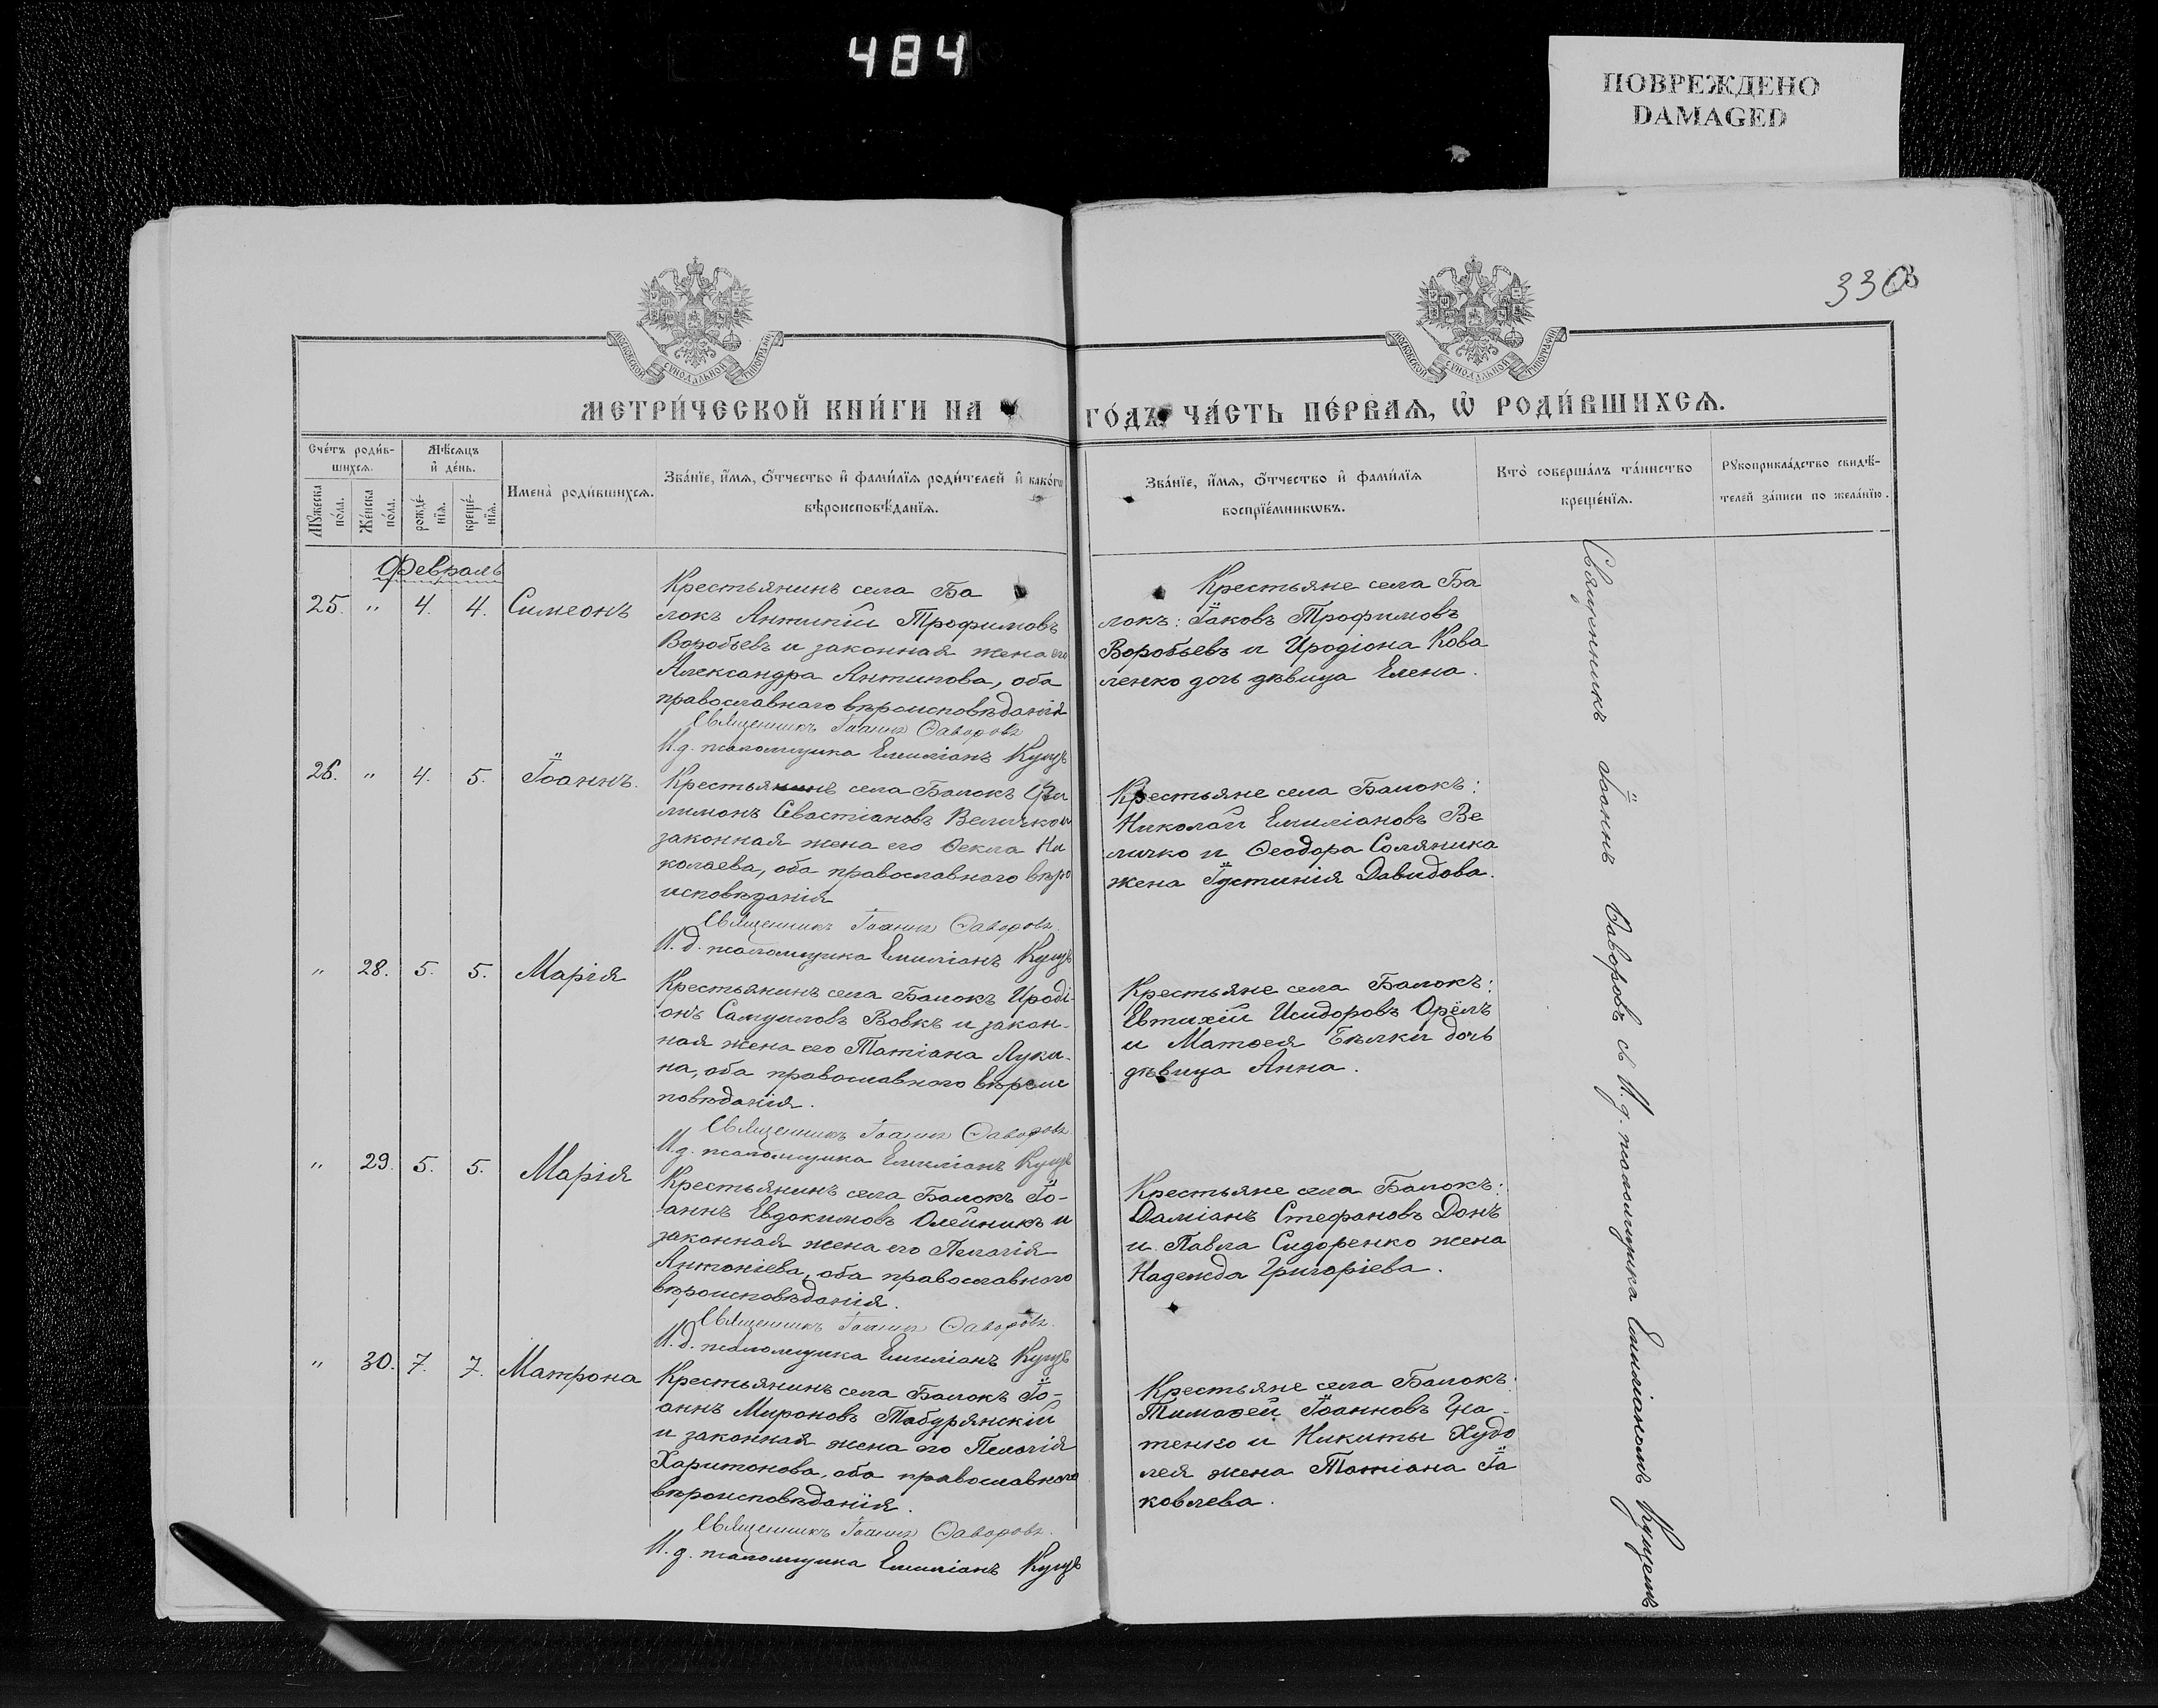 484
ПОВРЕЖДЕНО
DAMAGED
330
МОСКОВСКОЙ СУНОДАЛЬНОЙ ТИПОГРАФІИ
МОСКОВСКОЙ СУНОДАЛЬНОЙ ТИПОГРАФІИ
МЕТРИ́ЧЕСКОЙ КНИ́ГИ НА
ГО́ДЪ ЧА́СТЬ ПЕ́РВАѦ, Ѽ РОДИ́ВШИХСѦ.
Сче́тъ роди́в-
шихсѧ.
Мѣ́сѧцъ
и҆ де́нь.
Мꙋ́жеска
по́ла.
Же́нска
по́ла.
рожде́-
нїѧ.
креще́-
нїѧ.
Имена̀ роди́вшихсѧ.
Зва́нїе, и҆́мѧ, ѻ҆́тчество и҆ фами́лїѧ роди́телей и҆ како́гѡ
вѣроисповѣ́данїѧ.
Зва́нїе, и҆́мѧ, ѻ҆́тчество и҆ фами́лїѧ
воспрїе́мникѡвъ.
Кто̀ соверша́лъ та́инство
креще́нїѧ.
Рꙋкоприкла́дство свидѣ́-
телей за́писи по жела́нїю.
Февраль
25. " 4. 4. Симеонъ
Крестьянинъ села Ба
локъ Антипій Трофимовъ
Воробьевъ и законная жена его
Александра Антипова, оба
православнаго вѣроисповѣданія
Священникъ Іоаннъ Ѳаворовъ
И.д. псаломщика Емиліанъ Кущъ
Крестьяне села Ба
локъ: Іаковъ Трофимовъ
Воробьевъ и Иродіона Кова
ленко дочь дѣвица Елена.
26. " 4. 5. Іоаннъ.
Крестьянинъ села Балокъ Фи
лимонъ Севастіановъ Величко и
законная жена его Ѳекла Ни
колаева, оба православнаго вѣро
исповѣданія
Священникъ Іоаннъ Ѳаворовъ
И.д. псаломщика Емиліанъ Кущъ
Крестьяне села Балокъ:
Николай Емиліановъ Ве
личко и Ѳеодора Соляника
жена Іустинія Давидова.
" 28. 5. 5. Марія
Крестьянинъ села Балокъ Ироді-
онъ Самуиловъ Вовкъ и закон-
ная жена его Татіана Луки-
на, оба православнаго вѣроис
повѣданія.
Священникъ Іоаннъ Ѳаворовъ
И.д. псаломщика Емиліанъ Кущъ
Крестьяне села Балокъ:
Евтихій Исидоровъ Орёлъ
и Матѳея Бѣлки дочь
дѣвица Анна.
" 29. 5. 5. Марія
Крестьянинъ села Балокъ Іо-
аннъ Евдокимовъ Олейникъ и
законная жена его Пелагія
Антоніева, оба православнаго
вѣроисповѣданія.
Священникъ Іоаннъ Ѳаворовъ.
И.д. псаломщика Емиліанъ Кущъ
Крестьяне села Балокъ:
Даміанъ Стефановъ Донъ
и Павла Сидоренко жена
Надежда Григоріева.
" 30. 7. 7. Матрона
Крестьянинъ села Балокъ Іо-
аннъ Мироновъ Табурянскій
и законная жена его Пелагія
Харитонова, оба православнаго
вѣроисповѣданія.
Священникъ Іоаннъ Ѳаворовъ.
И.д. псаломщика Емиліанъ Кущъ
Крестьяне села Балокъ:
Тимоѳей Іоанновъ
тенко и Никиты Худо
лея жена Татіана Іа
ковлева.
Священникъ Іоаннъ Ѳаворовъ съ И.д. псаломщика Емиліаномъ Кущемъ